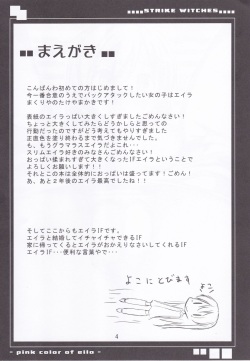 STRIKE WITCHES
まえがき
こんばんわ初めての方はじめまして！
今一番合意のうえでバックアタックしたい女の子はエイラ
まくりやのたけやまかきです！
表紙のエイラっぱい大きくしすぎましたごめんなさい！
ちょっと大きくしてみたらどうかしらと思っての
行動だったのですがどう考えてもやりすぎました
正直色を塗り終わるまで気づきませんでした。
もうグラマラスエイラだよこれ…
スリムエイラ好きのみなさんごめんなさい！
おっぱい揉まれすぎて大きくなったIFエイラということで
よろしくお願いします！！
それとこの本は全体的におっぱいは盛ってます！ごめん！
あ、あと２年後のエイラ最高でしたね！
そしてここからもエイラIFです。
エイラと結婚してイチャイチャできるIF
家に帰ってくるとエイラがおかえりなさいしてくれるIF
エイラIF･･･便利な言葉やで…
よこにとびます
よこ
4
- pink color of eila -